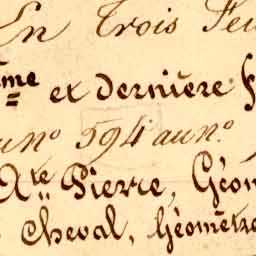 En Trois Feu
me et dernière F
au n° 594 au n°.
Xte Pierre, Géom
Cheval, Géomètre